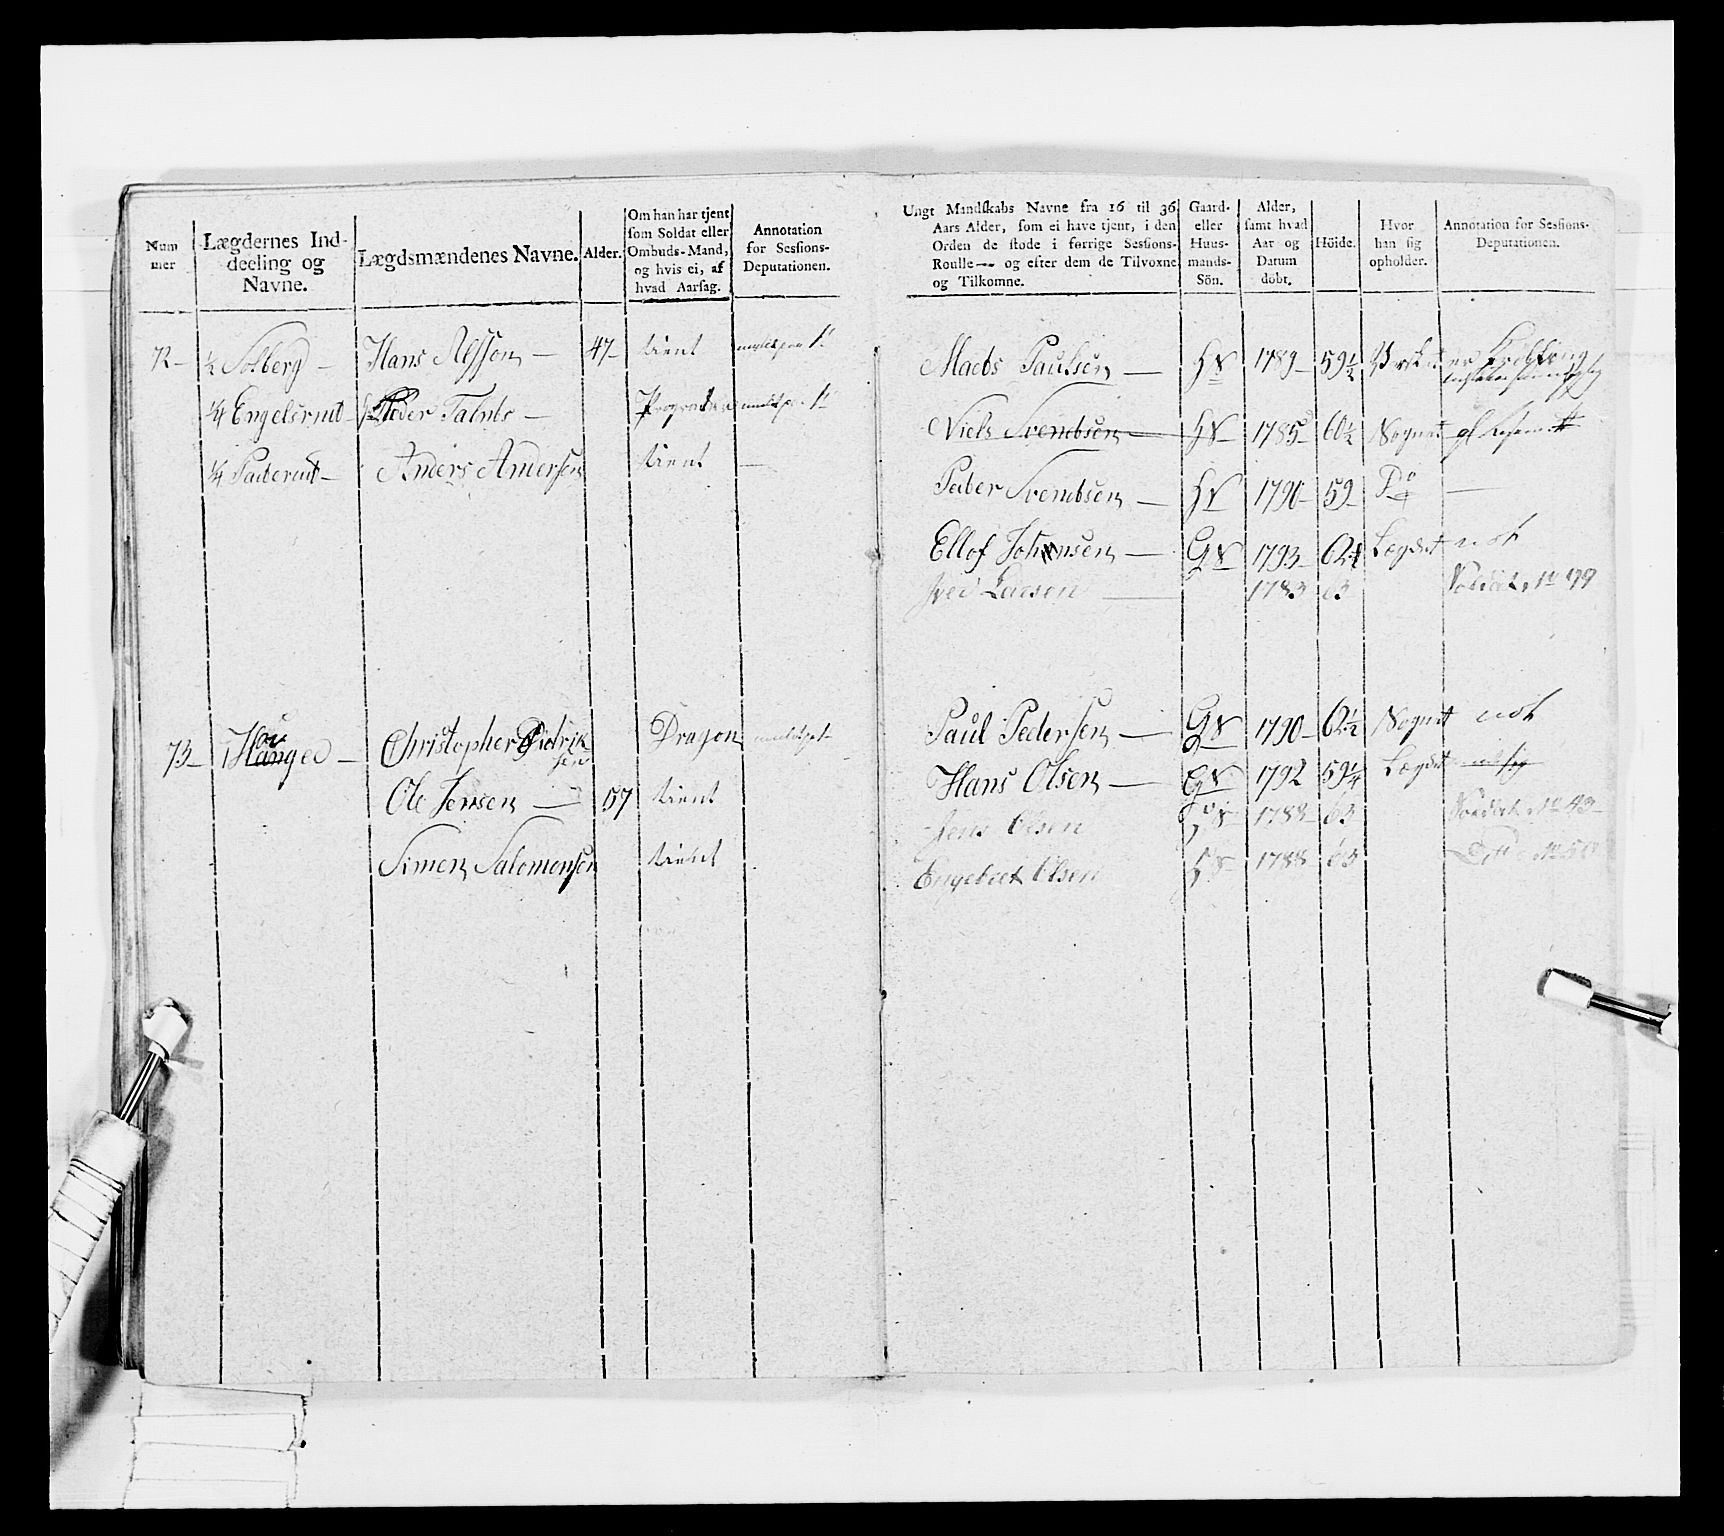 Num
mer
Lægdernes Ind-
deeling og
Navne.
Lægdsmændenes Navne.
Alder.
Om han har tjent
som Soldat eller
Ombuds-Mand,
og hvis ei, af
hvad Aarsag.
Annotation
for Sessions-
Deputationen.
72 ½ Solberg Hans Alfson 47 tient
¼ Engelsrud Peder
¼ Anders Andersen tient
73 1 Christopher Didrik
sen Dragon
Ole Jensen 57 tient
Simen Salomonsen tient
Ungt Mandskabs Navne fra 16 til 36
Aars Alder, som ei have tjent, i den
Orden de stode i forrige Sessions-
Roulle — og efter dem de Tilvoxne
og Tilkomne.
Gaard-
eller
Huus-
mands-
Sön.
Alder,
samt hvad
Aar og
Datum
döbt.
Höide.
Hvor
han sig
opholder.
Annotation for Sessions-
Deputationen.
Mads Paulsen HS 1789 59½ er
Niels Svendsen HS 1785 60½ Sognet
Peder Svendsen HS 1790 59 Do
Ellof Johansen GS 1793 Lægdet not
Larsen 1783 63 Soldat No 99
Paul Pedersen GS 1790 62½ Sognet not
Hans Olsen GS 1792 59¼ Lægdet
Jens Olsen 1783 63 Soldat No 43
Engebret Olsen 1788 63 Ditto No 50